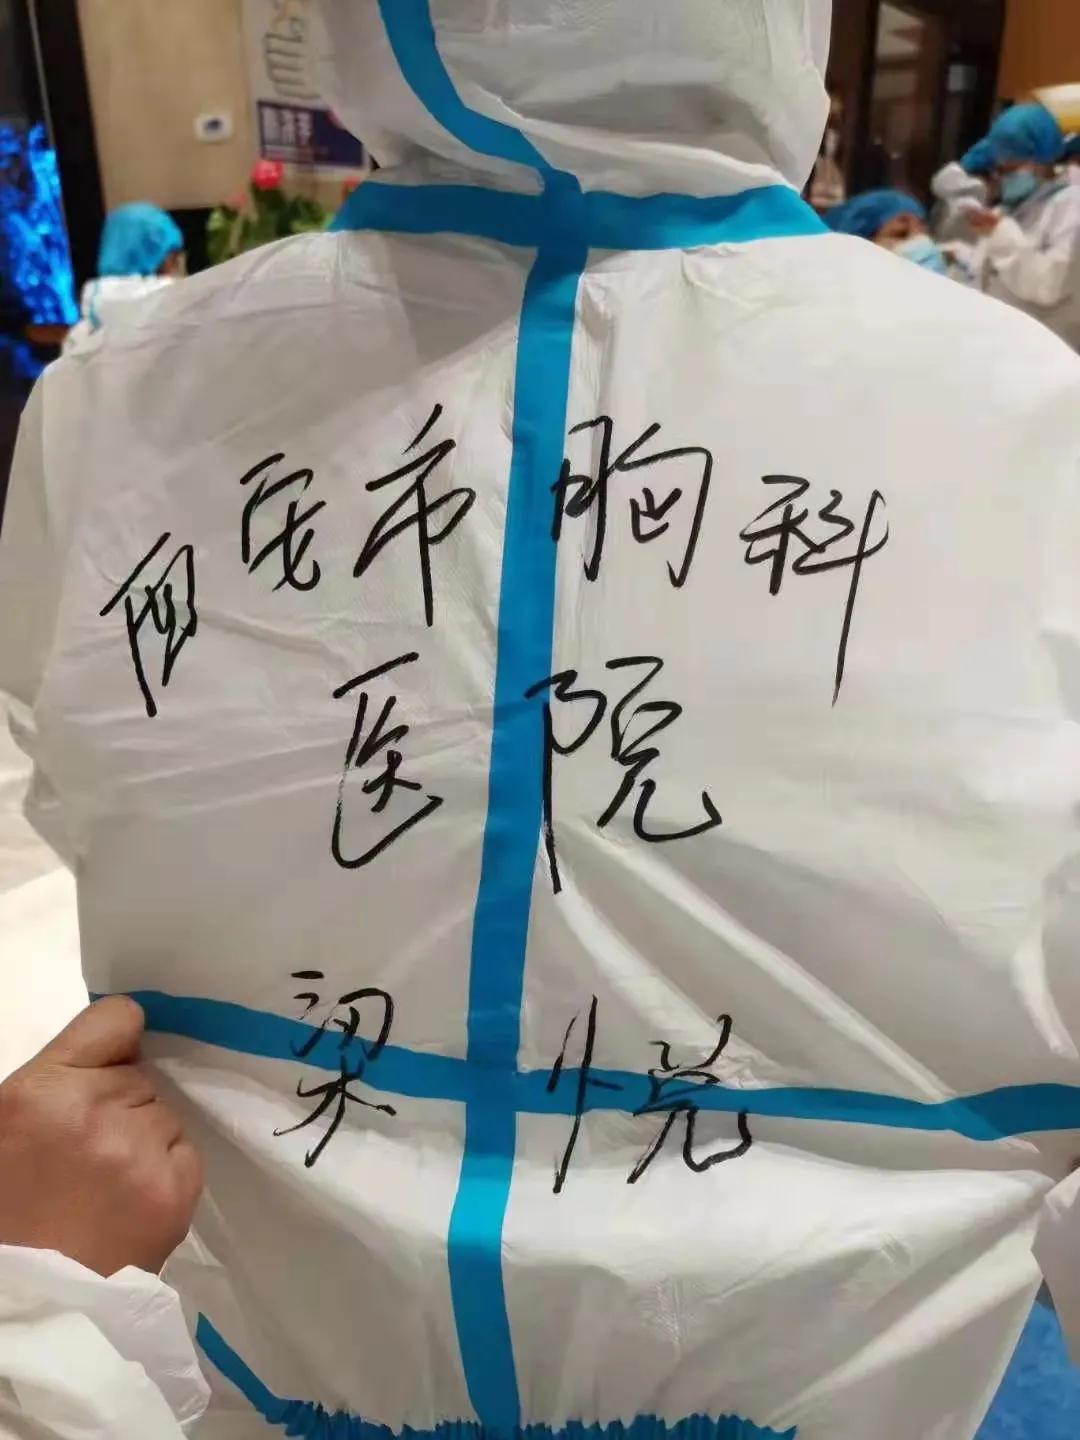 西安市胸科
医院
梁悦